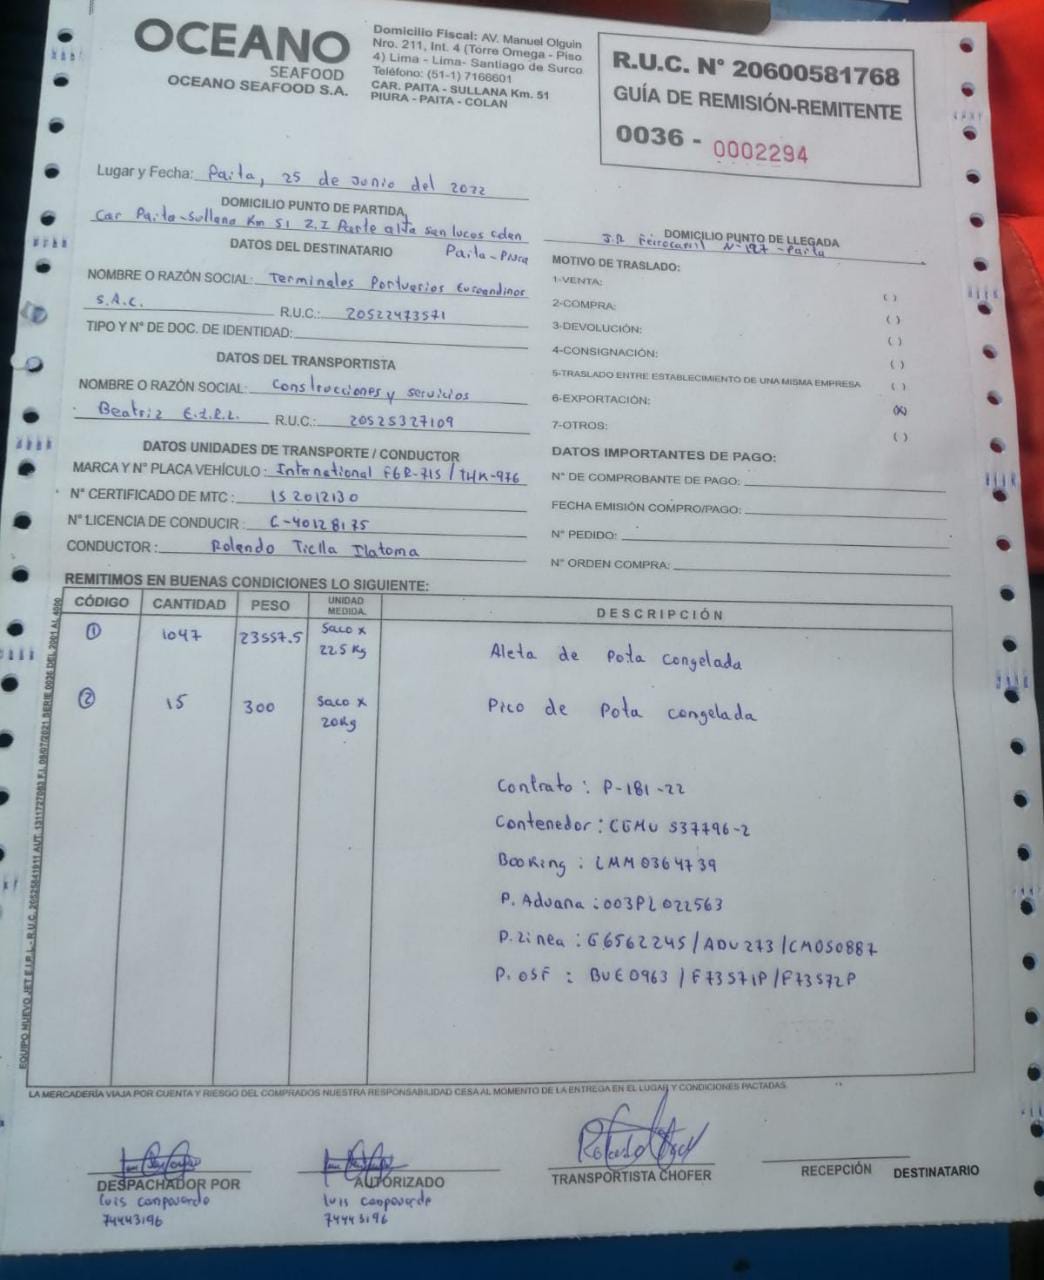 OCEANO
SEAFOOD
OCEANO SEAFOOD S.A.
Domicilio Fiscal: AV. Manuel Olguin
Nro. 211, Int. 4 (Torre Omega - Piso
4) Lima - Lima- Santiago de Surco
Teléfono: (51-1) 7166601
CAR. PAITA - SULLANA Km. 51
PIURA - PAITA - COLAN
R.U.C. N° 20600581768
GUÍA DE REMISIÓN-REMITENTE
0036 - 0002294
Lugar y Fecha: Paita, 25 de Junio del 2022
DOMICILIO PUNTO DE PARTIDA
Car Paita-Sullana Km 51 Z.I Parte alta san lucas colan
Paita-Piura
DOMICILIO PUNTO DE LLEGADA
J.R Ferrocarril N-127-Paita
DATOS DEL DESTINATARIO
NOMBRE O RAZÓN SOCIAL: Terminales Portuarios Euroandinos
S.A.C. R.U.C.: 20522473571
TIPO Y N° DE DOC. DE IDENTIDAD:
DATOS DEL TRANSPORTISTA
NOMBRE O RAZÓN SOCIAL: Construcciones y servicios
Beatriz E.I.R.L. R.U.C.: 20525327109
DATOS UNIDADES DE TRANSPORTE / CONDUCTOR
MARCA Y N° PLACA VEHÍCULO: International F6R-715 / THK-976
N° CERTIFICADO DE MTC: 152012130
N° LICENCIA DE CONDUCIR: C-40128175
CONDUCTOR: Rolando Ticlla Ilatoma
MOTIVO DE TRASLADO:
1-VENTA: ( )
2-COMPRA: ( )
3-DEVOLUCIÓN: ( )
4-CONSIGNACIÓN: ( )
5-TRASLADO ENTRE ESTABLECIMIENTO DE UNA MISMA EMPRESA ( )
6-EXPORTACIÓN: (X)
7-OTROS: ( )
DATOS IMPORTANTES DE PAGO:
N° DE COMPROBANTE DE PAGO:
FECHA EMISIÓN COMPRO/PAGO:
N° PEDIDO:
N° ORDEN COMPRA:
REMITIMOS EN BUENAS CONDICIONES LO SIGUIENTE:
CÓDIGO CANTIDAD PESO UNIDAD MEDIDA. DESCRIPCIÓN
1 1047 23557.5 Saco x 22.5 Kg Aleta de Pota congelada
2 15 300 Saco x 20Kg Pico de Pota congelada
Contrato: P-181-22
Contenedor: CGMU 537796-2
Booking: LMM0364739
P. Aduana: 003PL022563
P. Linea: G6562245/ADU273/CMOS0887
P. OSF: BUE0963/F73571P/F73572P
EQUIPO NUEVO JET E.I.R.L. - R.U.C. 20525841911 AUT. 1311727083 F.I. 08/07/2021 SERIE 0036 DEL 2001 AL 4500
LA MERCADERÍA VIAJA POR CUENTA Y RIESGO DEL COMPRADOS NUESTRA RESPONSABILIDAD CESA AL MOMENTO DE LA ENTREGA EN EL LUGAR Y CONDICIONES PACTADAS.
DESPACHADOR POR
luis campoverde
74443196
AUTORIZADO
luis campoverde
74443196
TRANSPORTISTA CHOFER
RECEPCIÓN DESTINATARIO